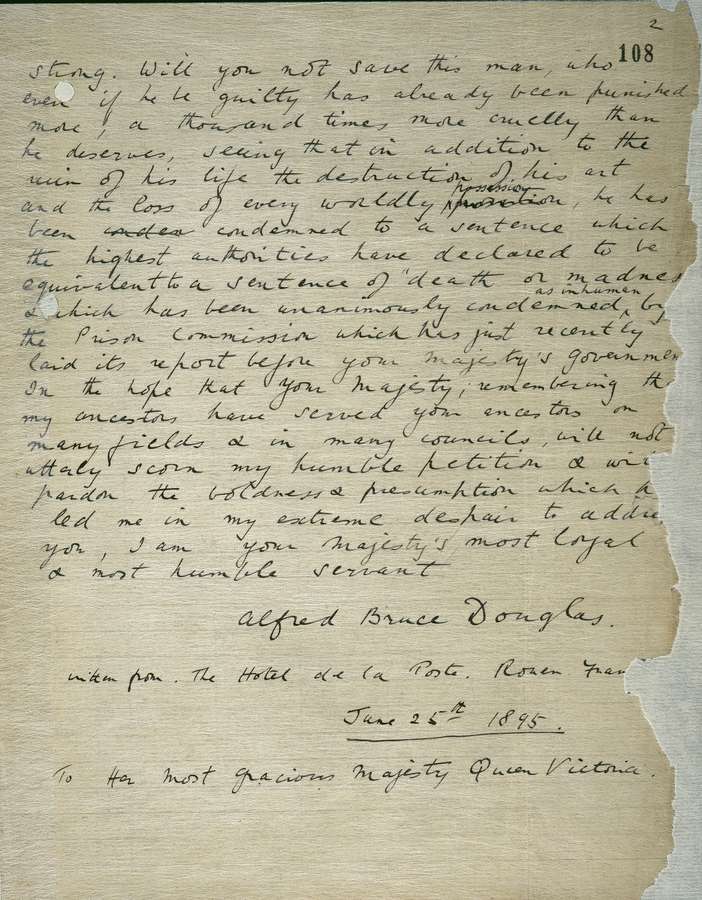 2
108
strong. Will you not save this man, who
even if he be guilty has already been punished
more, a thousand times more cruelly than
he deserves, seeing that in addition to the
ruin of his life the destruction of his art
and the loss of every worldly possession, he has
been condemned to a sentence which
the highest authorities have declared to be
equivalent to a sentence of "death or madnes
& which has been unanimously condemned as inhuman by
the Prison Commission which has just recently
laid its report before your majesty's governmen
In the hope that your Majesty, remembering th
my ancestors have served your ancestors on
many fields & in many councils, will not
utterly scorn my humble petition & wi
pardon the boldness & presumption which h
led me in my extreme despair to addre
you, I am your Majesty's most loyal
& most humble servant
Alfred Bruce Douglas.
written from. The Hotel de la Poste. Rouen Fran
June 25th 1895.
To Her most gracious Majesty Queen Victoria.